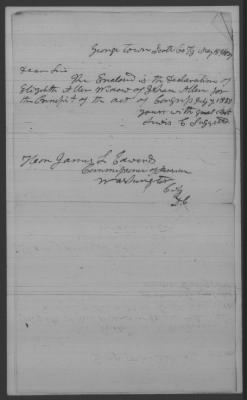 George Town Scott Co Ky
Dear Sir
The Enclosed is the Declaration of
Elizabeth Allen Widow of Allen for
the Benefit of the act of Congress July 7 1838
yours with great
Lewis C Suggett
Hon James L Edwards
Commissioner of Pension
Washington
City
D.C